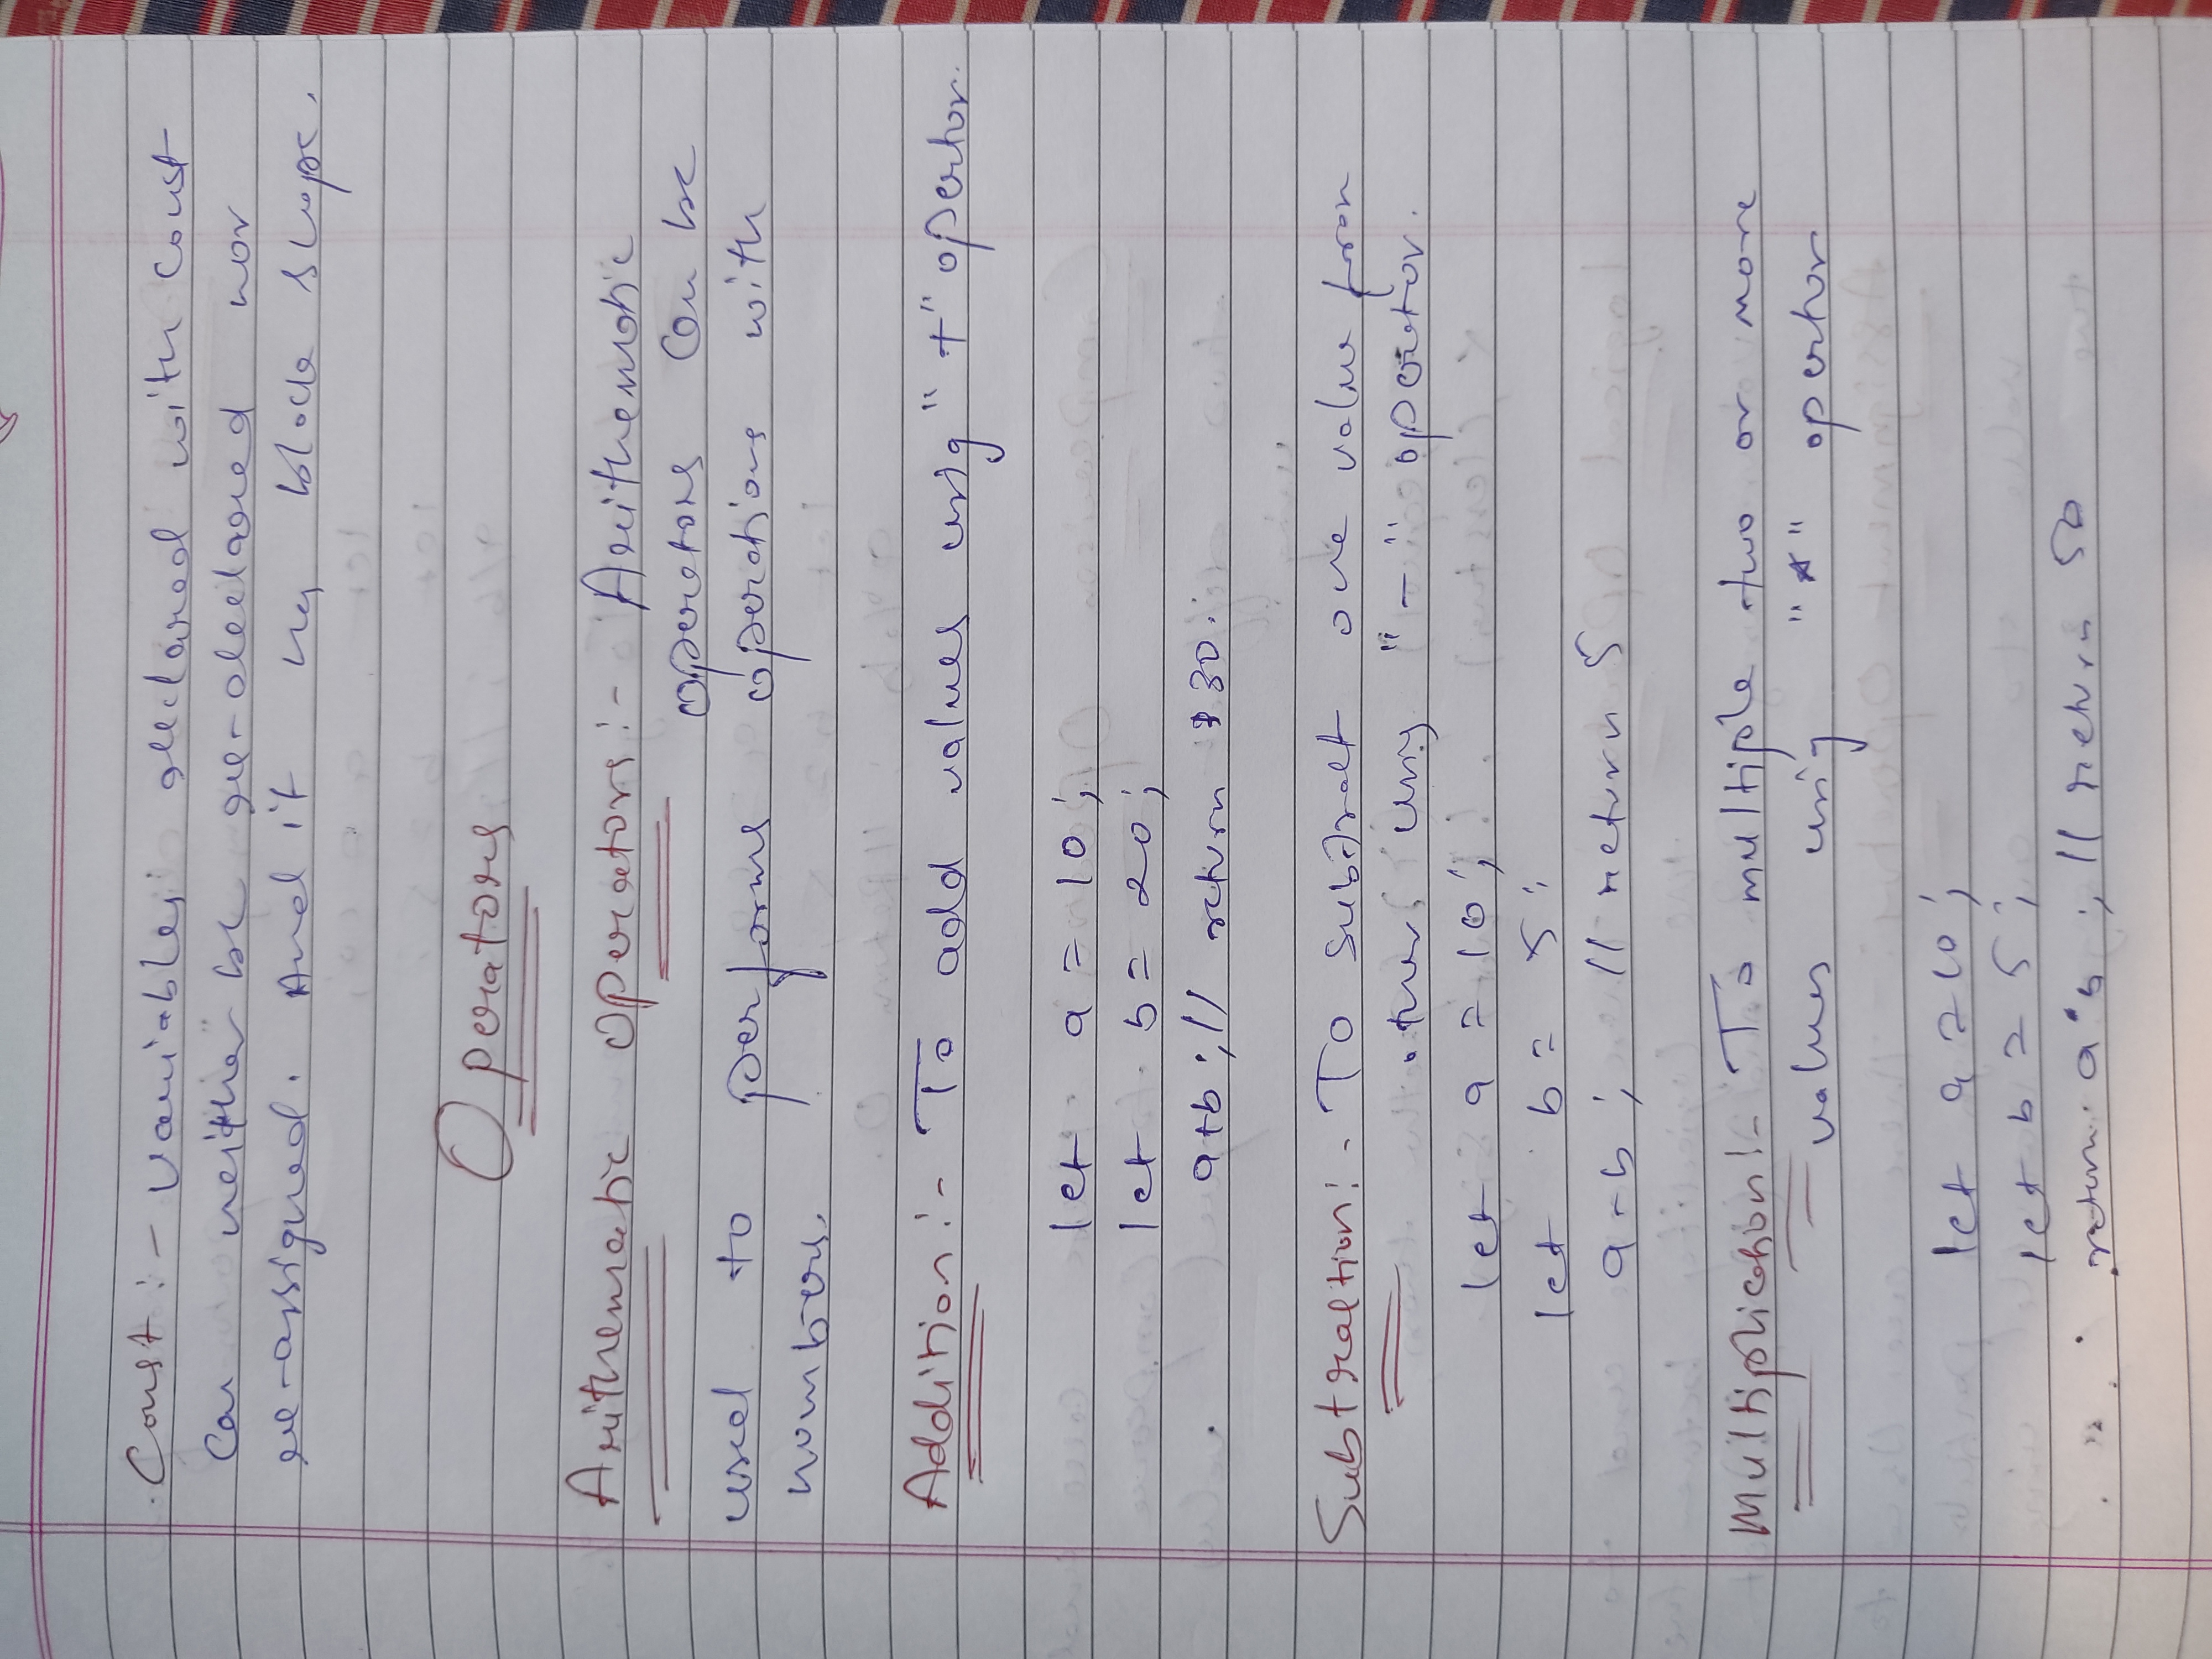 Const :- Variables declared with Const
Can neither be re-declared nor
re-assigned. And it has block scope.
Operators
Arithematic Operators :- Arithematic
operators Can be
used to performs operations with
numbers.
Addition :- To add values using "+" opertor.
let a = 10;
let b = 20;
a+b ; // return 30.
Subtraction :- To subtract one value from
other using "-" opertor.
let a = 10;
let b = 5;
a-b ; // return 5
Multiplication :- To multiple two or more
values using "*" opertor
let a = 10;
let b = 5;
return a*b ; // return 50